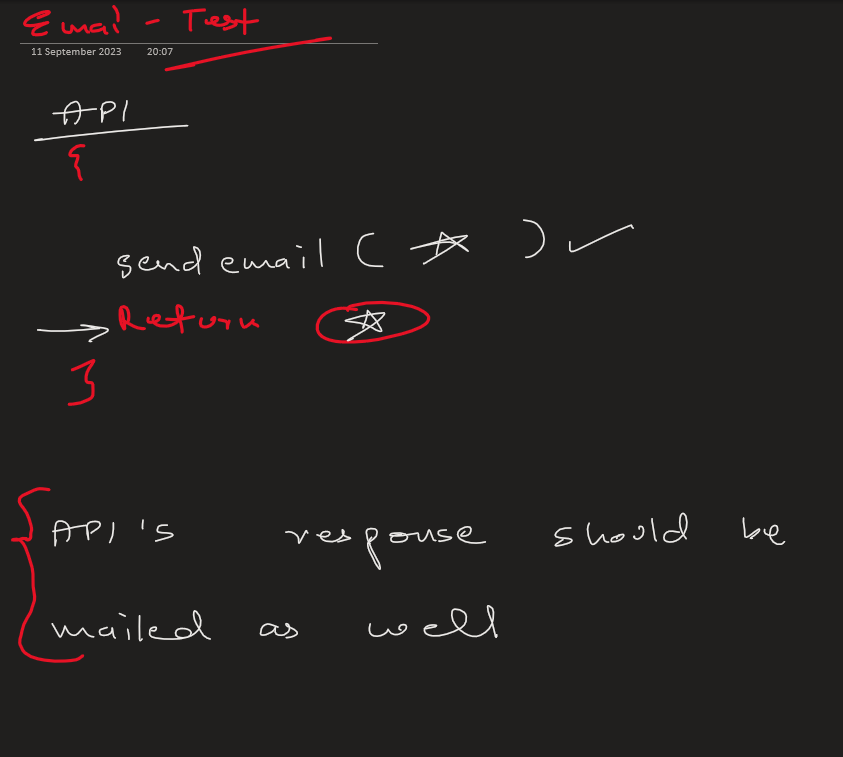 Email - Test
11 September 2023 20:07
API
{
send email ( ☆ ) ✓
→ Return ☆
}
{ API's response should be
mailed as well